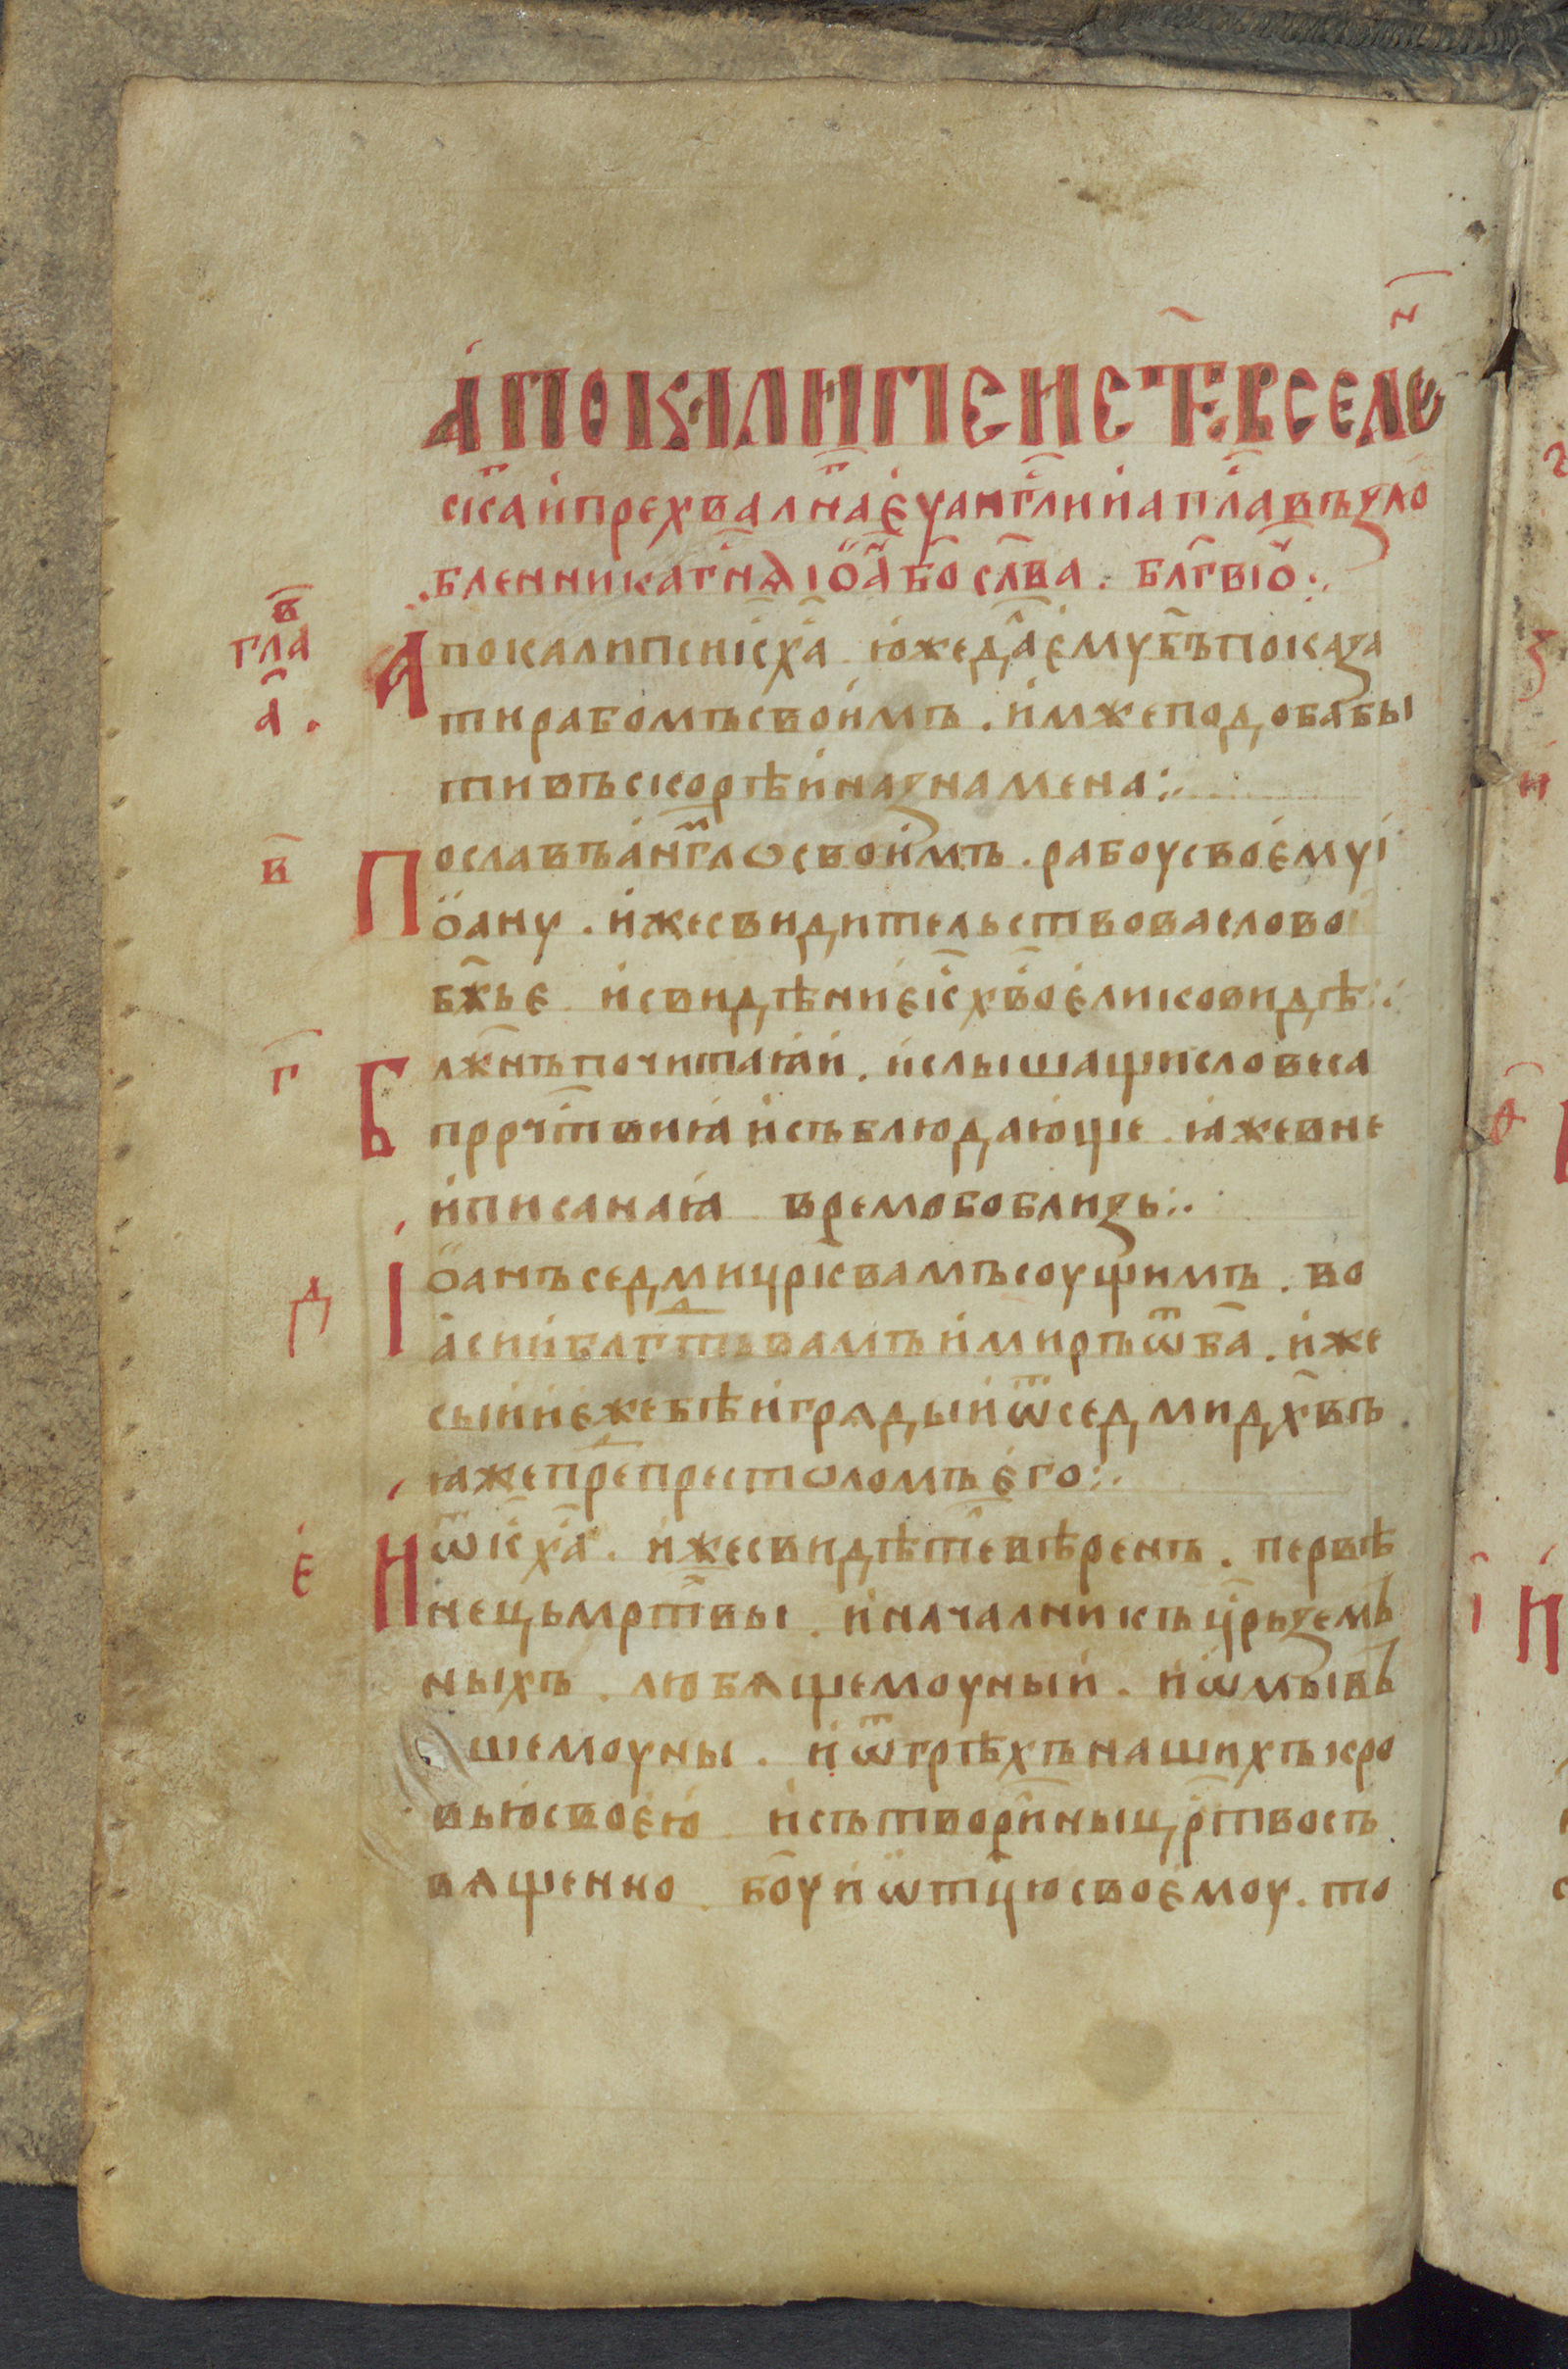 А҆покалипсисст҃євселе҃н
скаꙗипрехвалнаѥѵангл҃иꙗапл҃авъзлю
бленникагн҃ѧіѡ҆а҃бо҃сл҃ва. бл҃гвіо҃ч.
в҃
гла
а҃.
Апокалипсиіс҃х҃а ю҆жеда҃ємубг҃ъпоказа
тирабомъсвои҆мъ. и҆мжеподобабы
тивъскорѣи҆назнамена:.
в҃
Пославъа҆нг҃лѡсвои҆мъ. рабоусвоє҆муі
ѡ҆ану. и҆жесвидительствоваслово
бж҃ьє и҆свидѣниєі҃сх҃воє҆ликовидѣ:.
г҃
Блж҃нъпочитаꙗи. и҆слышащисловеса
прорчт҃виꙗи҆съблюдающе. ꙗжевне
и҆писанаꙗ времѧбоблизь:.
д
Іѡ҆анъседмицр҃квамъсоущимъ. во
а҆сиибл҃гдтьвамъи҆миръѿб҃а. и҆же
сыии҆є҆жебѣи҆грѧдыи҆ѿседмидх҃въ.
ꙗжепредпрестоломъє҆го:.
є
Иѿі҃сх҃а. и҆жесвидѣте҃вѣренъ. первѣ
нецьмрт҃вы. и҆началникъцр҃ьземь
ныхъ. любѧщемоуныи. и҆ѡмывь
шемоуны. и҆ѿгрѣхънашихъкро
вьюсвоє҆ю и҆сътвориныцр҃твосъ
вѧщенно. бо҃уи҆ѡтц҃юсвоє҆моу. то